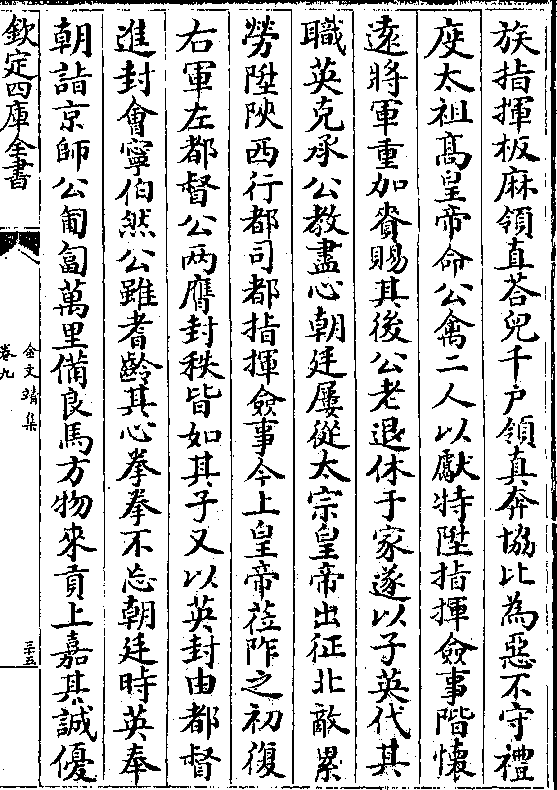 族指揮板麻領真荅兒千户領真奔協比為惡不守禮
度太祖髙皇帝命公禽二人以獻特陞指揮僉事階懐
遠將軍重加賚賜其後公老退休于家遂以子英代其
職英克承公教盡心朝廷屢從太宗皇帝出征北敵累
勞陞陜西行都司都指揮僉事今上皇帝莅阼之初復
右軍左都督公两膺封秩皆如其子又以英封由都督
進封會寧伯然公雖耆齡其心拳拳不忘朝廷時英奉
朝詣京師公匍匐萬里備良馬方物來貢上嘉其誠優
欽定四庫全書
金文靖集
卷九
三十五